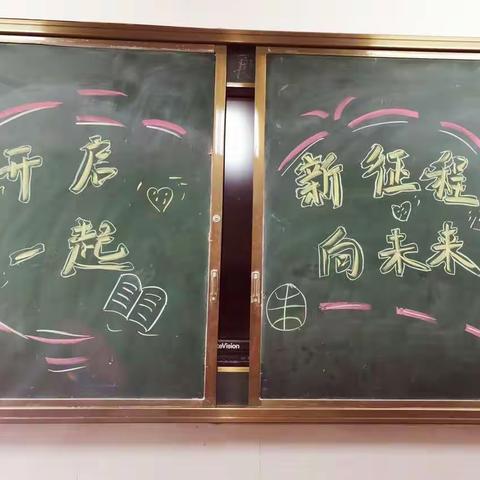 开启 新征程
一起 向未来
eVision